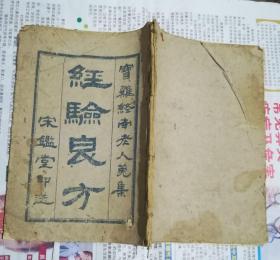 寶雞終南老人蒐集
經驗良方
宋鑑堂印送